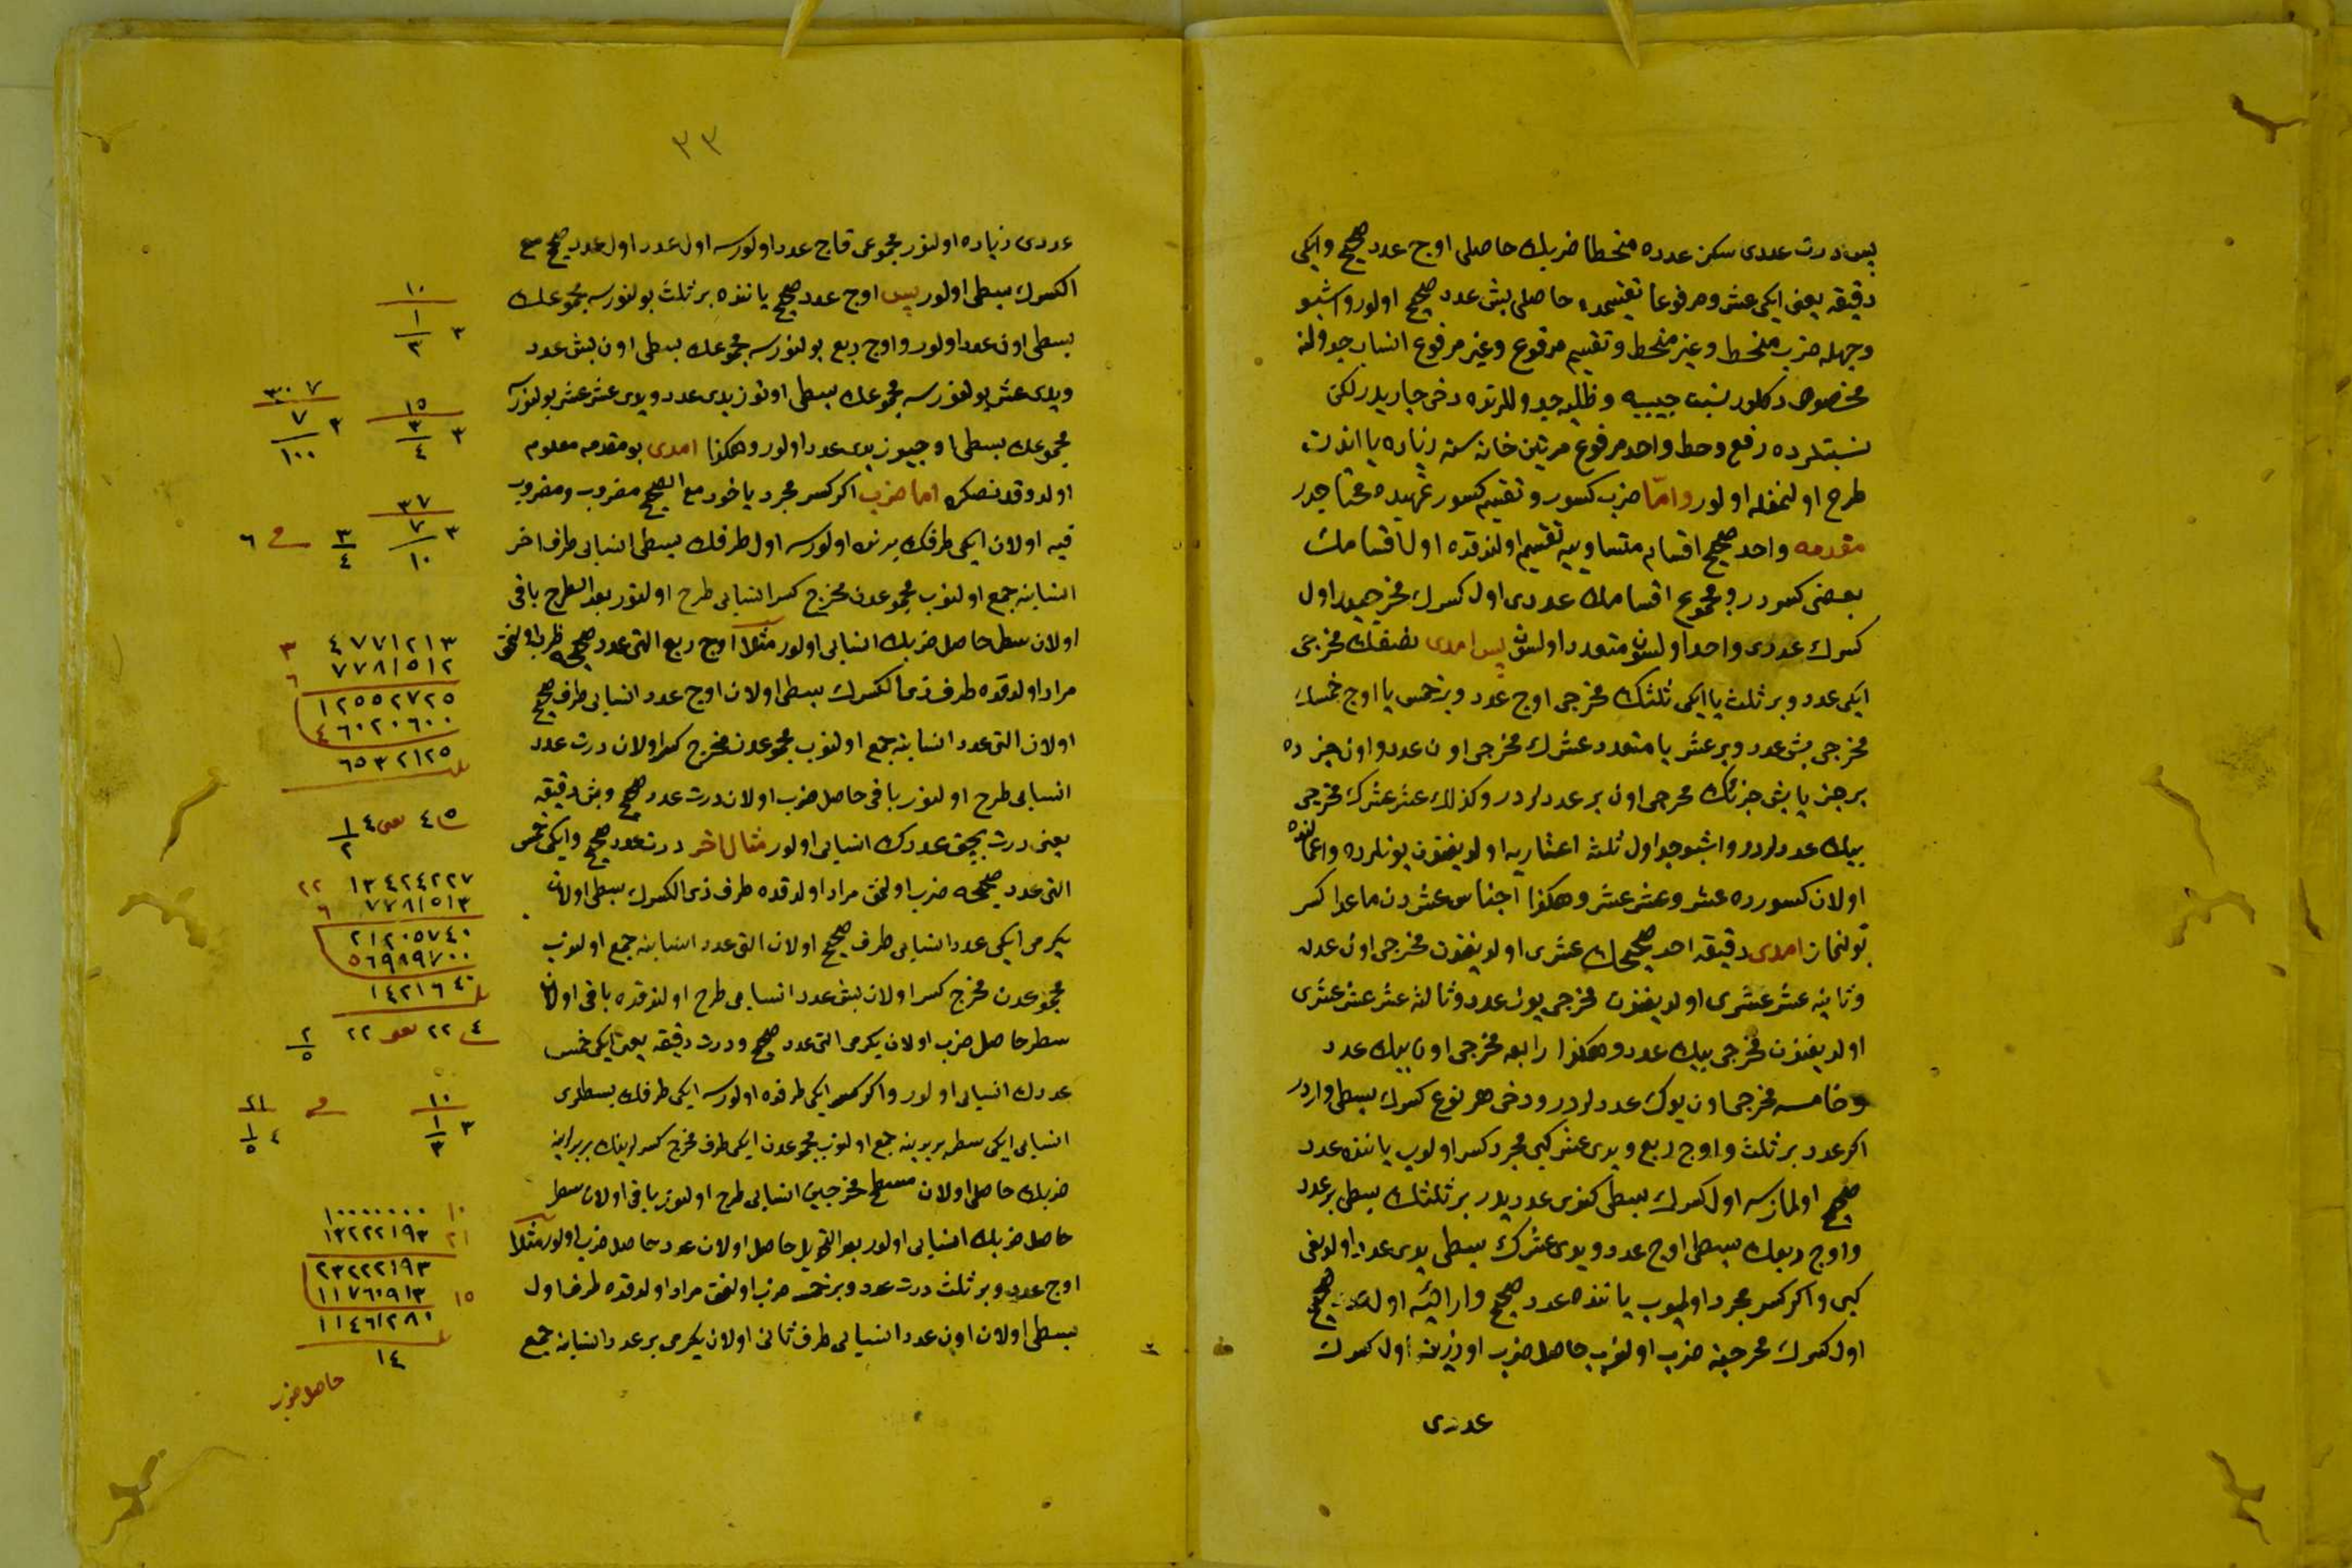 پس درت عددی سکز عدده منحطا ضربك حاصلی اوج عدد صحیح وایکی
دقیقه یعنی ایکی عشر ومرفوعا تقسیمده حاصلی بش عدد صحیح اولور واشبو
وجهله ضرب منحط وغیر منحط وتقسیم مرفوع وغیر مرفوع انساب جدولنه
مخصوص دکلدر نسبت جیبیه وظلیه جدوللرنده دخی جاریدر لکن
نسبتلرده رفع وحط واحد مرفوع مرتین خانه سنه زیاده یا اندن
طرح اولنمغله اولور وامّا ضرب کسور وتقسیم کسور تمهیده محتاجدر
مقدمه واحد صحیح اقسام متساویه یه تقسیم اولندقده اول اقسامك
بعضی کسردر ومجموع اقسامك عددی اول کسرك مخرجیدر اول
کسرك عددی واحد اولسون متعدد اولسون پس امدی نصفك مخرجی
ایکی عدد وبر ثلث یا ایکی ثلثك مخرجی اوج عدد وبر خمس یا اوج خمسك
مخرجی بش عدد وبر عشر یا متعدد عشرك مخرجی اون عدد واون جزده
بر جزء یا بش جزئك مخرجی اون بر عدددر وکذلك عشر عشرك مخرجی
بیك عدددر واشبو جداول ثلثه اعشاریه اولدیغندن بونلرده واعمالنده
اولان کسورده عشر وعشر عشر وهکذا اجناس عشردن ماعدا کسر
بولنماز امدی دقیقه احد صحیحك عشری اولدیغندن مخرجی اون عدد
وثانیه عشر عشری اولدیغندن مخرجی یوز عدد وثالثه عشر عشر عشری
اولدیغندن مخرجی بیك عدد وهکذا رابعه مخرجی اون بیك عدد
وخامسه مخرجی اون یوك عدددر ودخی هر نوع کسرك بسطی واردر
اکر عدد بر ثلث واوج ربع ویدی عشر کبی مجرد کسر اولوب یاننده عدد
صحیح اولمازسه اول کسرك بسطی کندی عددیدر بر ثلثك بسطی بر عدد
واوج ربعك بسطی اوج عدد ویدی عشرك بسطی یدی عدد اولدیغی
کبی واکر کسر مجرد اولمیوب یاننده عدد صحیح وار ایسه اول عدد صحیح
اول کسرك مخرجینه ضرب اولنوب حاصل ضرب اوزرینه اول کسرك
عددی
٣٣
عددی زیاده اولنور مجموعی قاج عدد اولورسه اول عدد اول عدد صحیح مع
الکسرك بسطی اولور پس اوج عدد صحیح یاننده بر ثلث بولنورسه مجموعك
بسطی اون عدد اولور واوج ربع بولنورسه مجموعك بسطی اون بش عدد
ویدی عشر بولنورسه مجموعك بسطی اوتوز یدی عدد ویدی عشر عشر بولنورسه
مجموعك بسطی اوجیوز یدی عدد اولور وهکذا امدی بو مقدمه معلوم
اولدوقدنصکره اما ضرب اکر کسر مجرد یاخود مع الصحیح مضروب ومضروب
فیه اولان ایکی طرفك برنده اولورسه اول طرفك بسطی انسابی طرف اخر
انسابنه جمع اولنوب مجموعدن مخرج کسر انسابی طرح اولنور بعد الطرح باقی
اولان سطر حاصل ضربك انسابی اولور مثلا اوج ربع التی عدد صحیحه ضرب اولنمق
مراد اولندقده طرف ذی الکسرك بسطی اولان اوج عدد انسابی طرف صحیح
اولان التی عدد انسابنه جمع اولنوب مجموعدن مخرج کسر اولان درت عدد
انسابی طرح اولنور باقی حاصل ضرب اولان درت عدد صحیح وبش دقیقه
یعنی درت بچق عددك انسابی اولور مثال اخر درت عدد صحیح وایکی خمس
التی عدد صحیحه ضرب اولنمق مراد اولندقده طرف ذی الکسرك بسطی اولان
یکرمی ایکی عدد انسابی طرف صحیح اولان التی عدد انسابنه جمع اولنوب
مجموعدن مخرج کسر اولان بش عدد انسابی طرح اولندقده باقی اولان
سطر حاصل ضرب اولان یکرمی التی عدد صحیح ودرت دقیقه یعنی ایکی خمس
عددك انسابی اولور واکر کسر ایکی طرفده اولورسه ایکی طرفك بسطلری
انسابی ایکی سطر بربرینه جمع اولنوب مجموعدن ایکی طرف مخرج کسرلرینك بربرینه
ضربك حاصلی اولان مسطح مخرجین انسابی طرح اولنور باقی اولان سطر
حاصل ضربك انسابی اولور بعد التحویل حاصل اولان عدد حاصل ضرب اولور مثلا
اوج عدد وبر ثلث درت عدد وبر خمسه ضرب اولنمق مراد اولندقده طرف اول
بسطی اولان اون عدد انسابی طرف ثانی اولان یکرمی بر عدد انسابنه جمع
١٠
٣ ١/٣
١٥ ٣٠٧
٣ ٣/٤ ٣ ٧/١٠٠
٣٧
٣ ٧/١٠ ٣/٤ فی ٦
٤٧٧١٢١٣ ٣
٧٧٨١٥١٢ ٦
١٢٥٥٢٧٢٥
٤ ٦٠٢٠٦٠٠
٦٥٣٢١٢٥
٤٥ یعنی ٤ ١/٢
١٣٤٢٤٢٢٧ ٢٢
٧٧٨١٥١٣ ٦
٢١٢٠٥٧٤٠
٥ ٦٩٨٩٧٠٠
١٤٢١٦٤٠
٤ ٢٢ یعنی ٢٢ ٢/٥
١٠ ٢١
٣ ١/٣ فی ٤ ١/٥
١٠٠٠٠٠٠٠ ١٠
١٣٢٢٢١٩٣ ٢١
٢٣٢٢٢١٩٣
١١٧٦٠٩١٣ ١٥
١١٤٦١٢٨١
١٤
حاصل ضرب